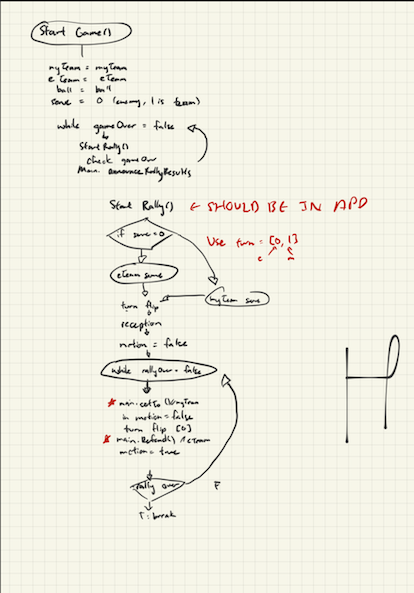 Start Game()
myTeam = myTeam
eTeam = eTeam
ball = ball
serve = 0 (enemy, 1 is team)
while gameOver = false
StartRally()
Check gameOver
Main.announceRallyResults
Start Rally() ← SHOULD BE IN APP
if serve = 0
Use turn = [0, 1]
e
eTeam serve
myTeam serve
turn flip
reception
motion = false
while rallyOver = false
* main.
myTeam
in motion = false
turn flip [0]
* main.Defend() eTeam
motion = true
rally over
F
T: break
H